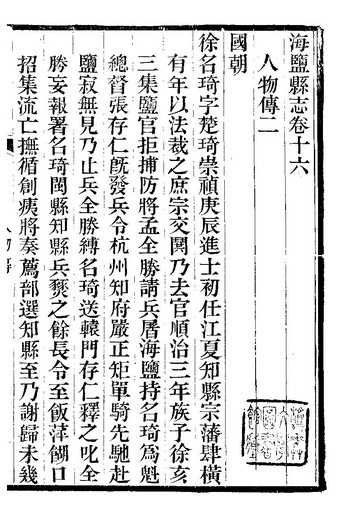 海鹽縣志卷十六
人物傳二
國朝
徐名琦字楚琦崇禎庚辰進士初任江夏知縣宗藩肆橫
有年以法裁之庶宗交鬨乃去官順治三年族子徐亥
三集鹽官拒捕防將孟全勝請兵屠海鹽持名琦為魁
總督張存仁旣發兵令杭州知府嚴正矩單騎先馳赴
鹽寂無見乃止兵全勝縛名琦送轅門存仁釋之叱全
勝妄報署名琦閩縣知縣兵燹之餘長令至飯萍餬口
招集流亡撫循創痍將奏薦部選知縣至乃謝歸未幾
人物傳